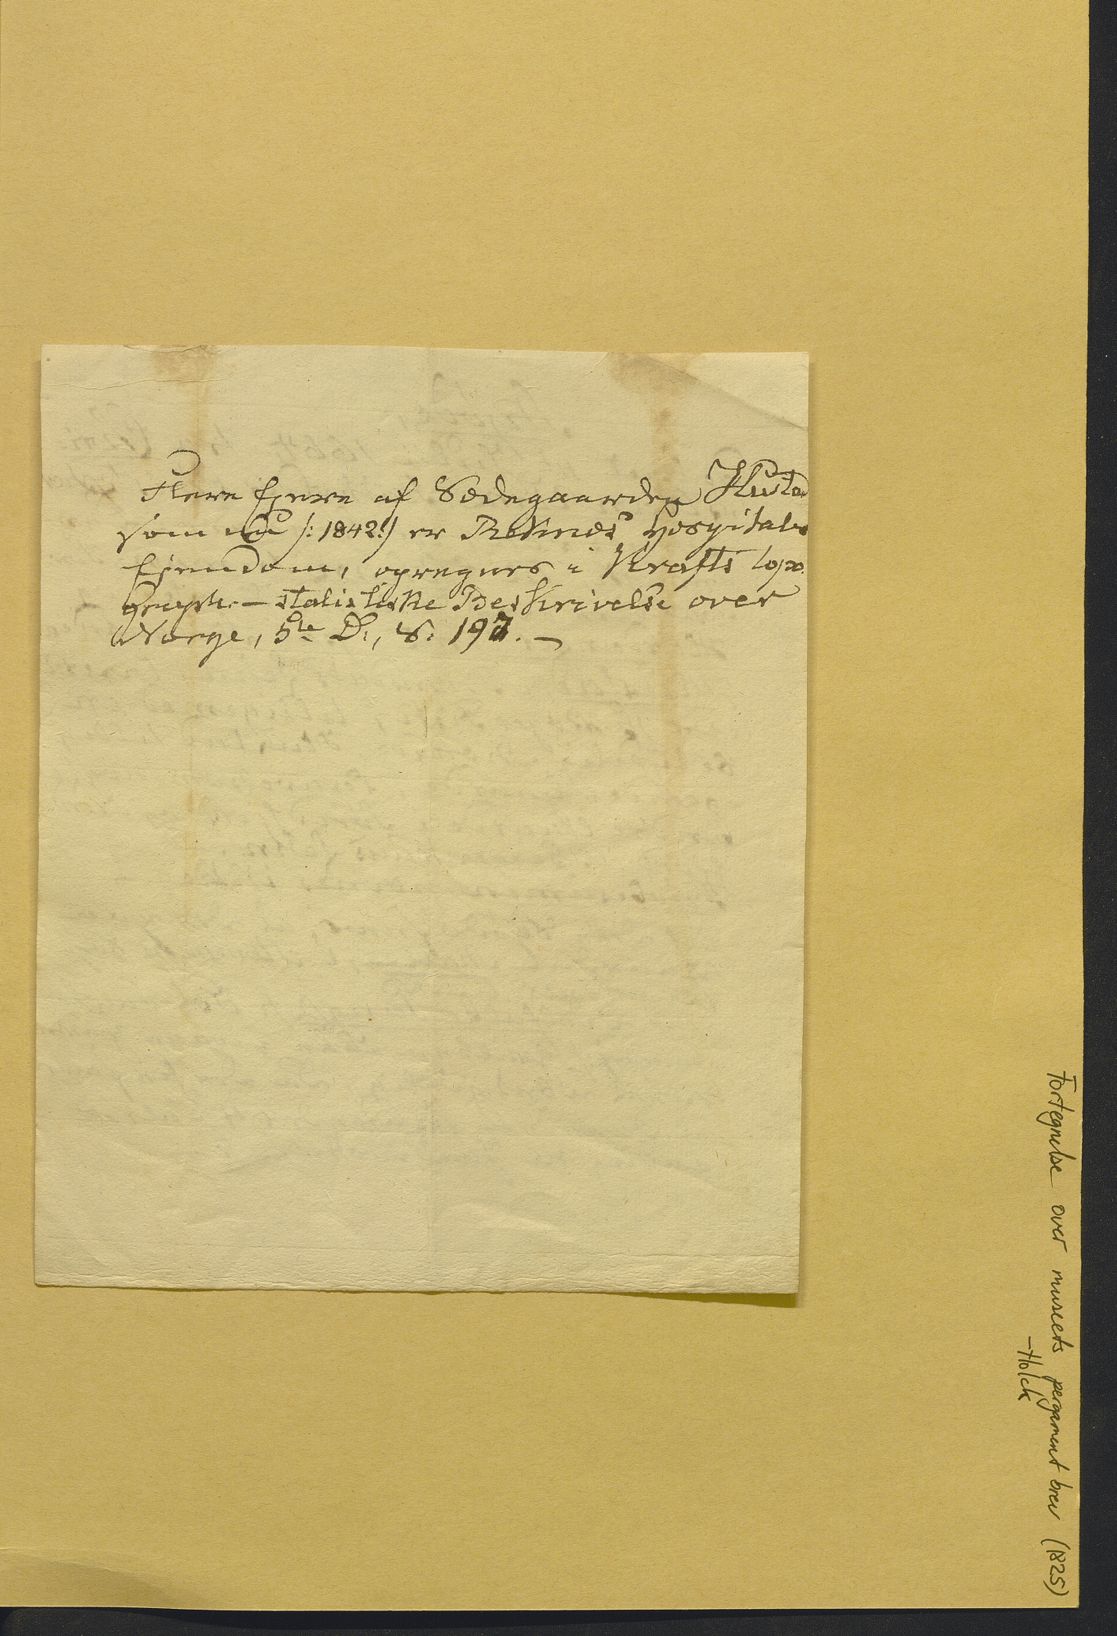 Flere Ejere af Sædegaarden Hustad
som nu /: 1842 :/ er Reknes Hospitals
Ejendom, opregnes i Krafts topo-
graph.-statistiske Beskrivelse over
Norge, 5te D., S. 197. —
Fortegnelse over museets pergament brev (1825)
- Holck